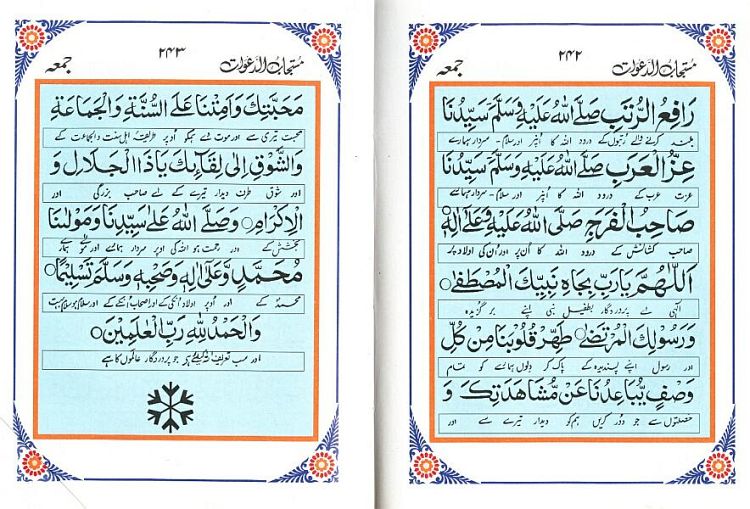 مستجاب الدعوات ۲۴۲ جمعہ
رَافِعُ الرُّتَبِ صَلَّى اللهُ عَلَيْهِ وَسَلَّمَ سَيِّدُنَا
بلند کرنے والے رتبوں کے درود اللہ کا اُنپر اور سلام - سردار ہمارے
عِزُّ الْعَرَبِ صَلَّى اللهُ عَلَيْهِ وَسَلَّمَ سَيِّدُنَا
عزت عرب کے درود اللہ کا اُنپر اور سلام - سردار ہمارے
صَاحِبُ الْفَرَجِ صَلَّى اللهُ عَلَيْهِ وَعَلٰى اٰلِهٖ
صاحب کشائش کے درود اللہ کا اُن پر اور اُن کی اولاد پر
اَللّٰهُمَّ يَارَبِّ بِجَاهِ نَبِيِّكَ الْمُصْطَفٰى
الٰہی اے پروردگار بطفیل نبی اپنے برگزیدہ
وَرَسُوْلِكَ الْمُرْتَضٰى طَهِّرْ قُلُوْبَنَا مِنْ كُلِّ
اور رسول اپنے پسندیدہ کے پاک کر دلوں ہمارے کو تمام
وَصْفٍ يُّبَاعِدُنَا عَنْ مُّشَاهَدَتِكَ وَ
خصلتوں سے جو دور کریں ہم کو دیدار تیرے سے اور
مستجاب الدعوات ۲۴۳ جمعہ
مَحَبَّتِكَ وَاَمِتْنَا عَلَى السُّنَّةِ وَالْجَمَاعَةِ
محبت تیری سے اور موت دے ہمکو اُوپر طریقہ اہل سنت و الجماعت کے
وَالشَّوْقِ اِلٰى لِقَآئِكَ يَاذَا الْجَلَالِ وَ
اور شوق طرف دیدار تیرے کے اے صاحب بزرگی اور
الْاِكْرَامِ وَصَلَّى اللهُ عَلٰى سَيِّدِنَا وَمَوْلٰىنَا
بخشش کے اور رحمت ہو اللہ کی اوپر سردار ہمارے اور مولے ہمارے
مُحَمَّدٍ وَّعَلٰى اٰلِهٖ وَصَحْبِهٖ وَسَلَّمَ تَسْلِيْمًا
محمدؐ کے اور اُوپر اولاد اُنکی کے اور اصحاب اُنکے کے اور سلام ہو سلام بہت
وَالْحَمْدُ لِلّٰهِ رَبِّ الْعٰلَمِيْنَ
اور سب تعریف اللہ کے لیے ہی جو پروردگار عالموں کا ہے